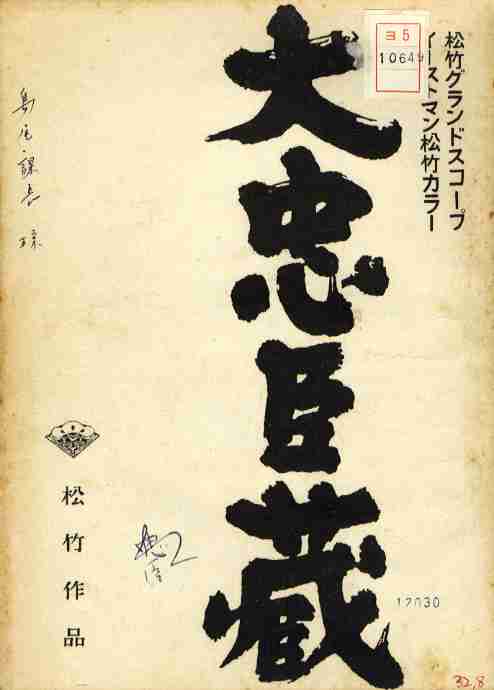 松竹グランドスコープ
イーストマン松竹カラー
ヨ5
10649
大忠臣蔵
島尾課長様
松竹作品
12030
32,8